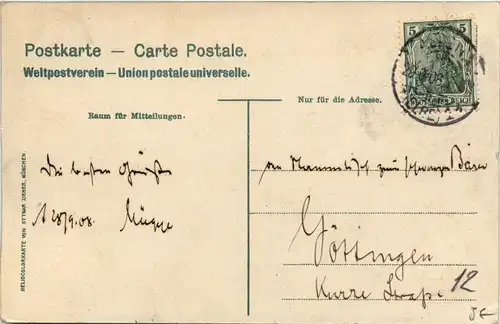 Postkarte — Carte Postale.
Weltpostverein — Union postale universelle.
Nur für die Adresse.
Raum für Mitteilungen.
5 5
DEUTSCHES REICH
Die besten Grüße
28/9.08.
an Stammtisch zum schwarzen Bären
Göttingen
Kurze Straße 12
HELIOCOLORKARTE VON OTTMAR ZIEHER, MÜNCHEN